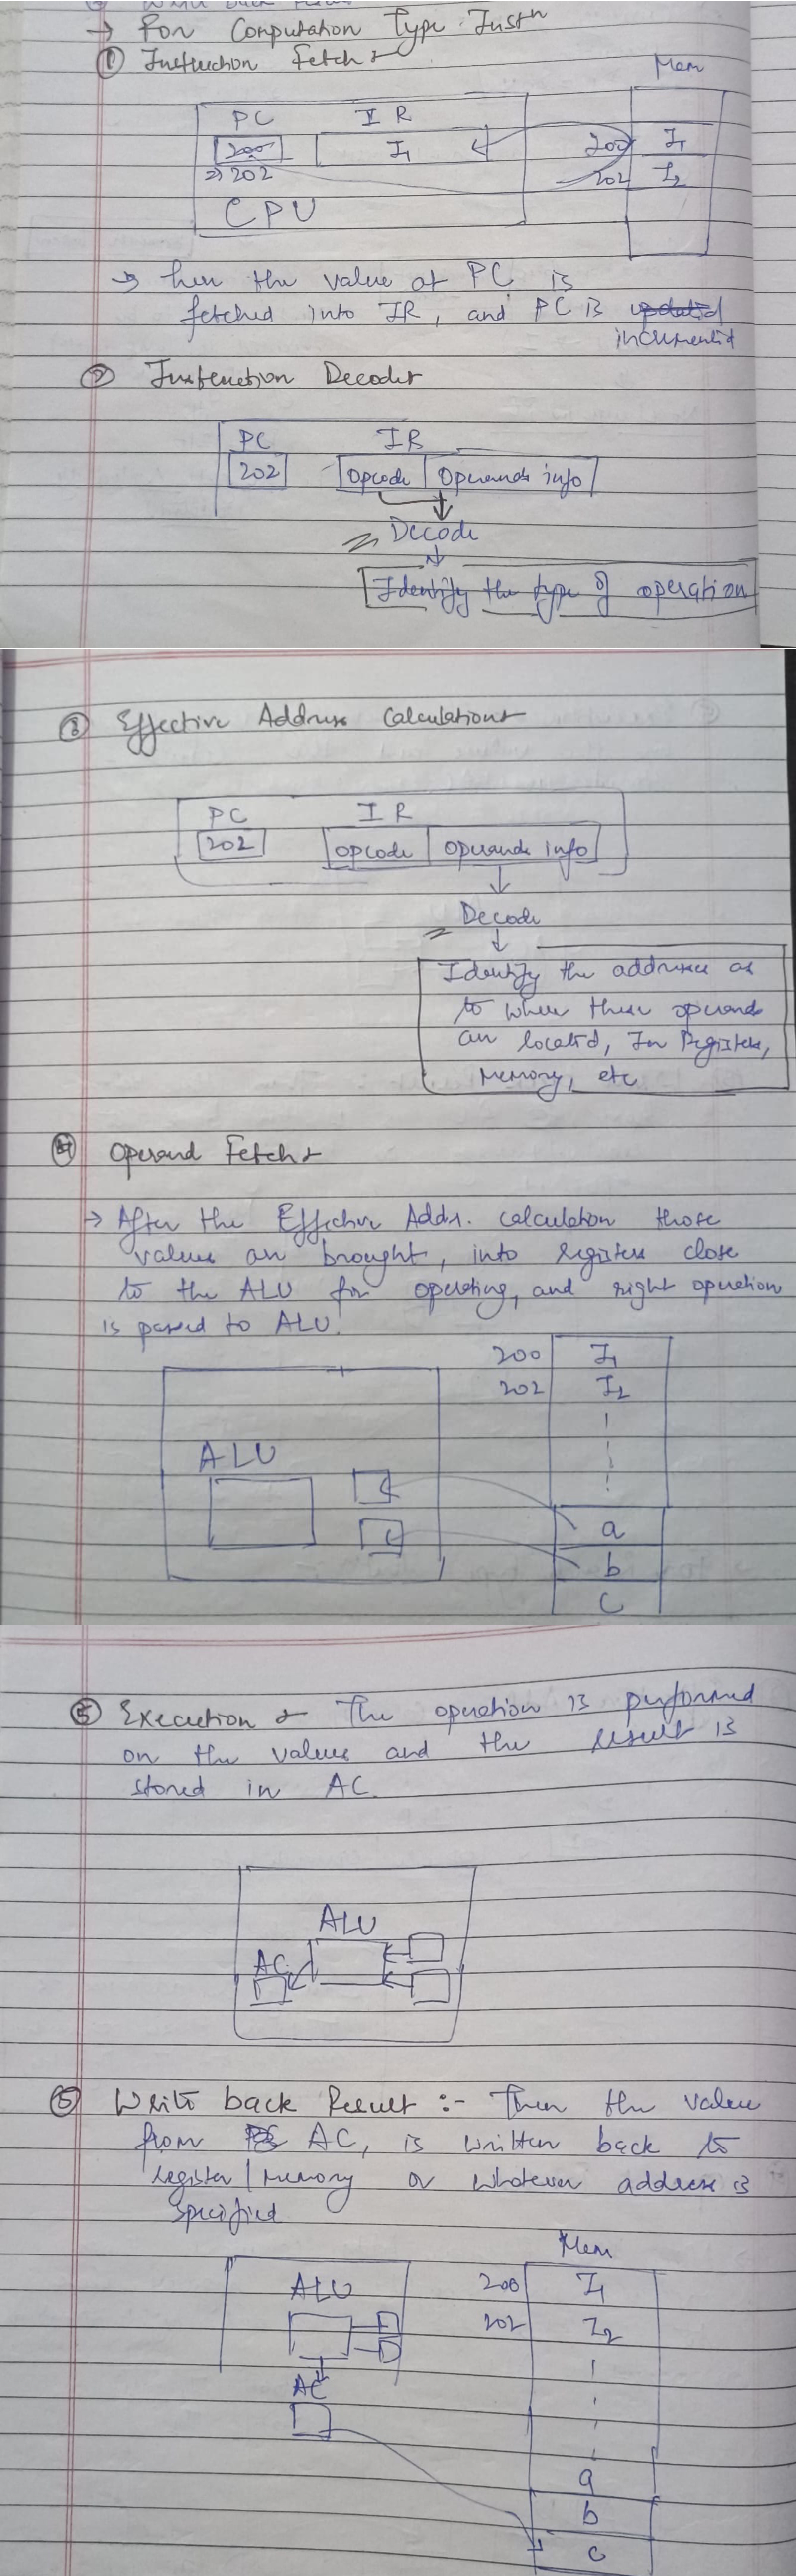 → For Computation Type Instⁿ
① Instruction Fetch :-
Mem
PC IR
200 I₁ 200 I₁
⇒ 202 202 I₂
CPU
→ here the value at PC is
fetched into IR, and PC is updated
incremented
② Instruction Decode :-
PC IR
202 Opcode Operands info
Decode
Identify the type of operation
③ Effective Address Calculation :-
PC IR
202 opcode operands info
Decode
Identify the addresses as
to where these operands
are located, In Registers,
Memory, etc
④ Operand Fetch :-
→ After the Effective Addr. calculation those
values are brought, into registers close
to the ALU for operating, and right operation
is passed to ALU.
200 I₁
202 I₂
ALU
a
b
c
⑤ Execution :- The operation is performed
on the values and the result is
stored in AC.
ALU
AC
⑥ Write back Result :- Then the value
from AC, is written back to
register / memory or whatever address is
specified
Mem
ALU 200 I₁
202 I₂
AC
a
b
c